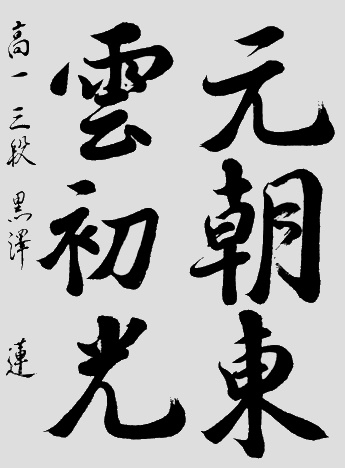 元朝東
雲初光
高一 三段 黒澤 蓮